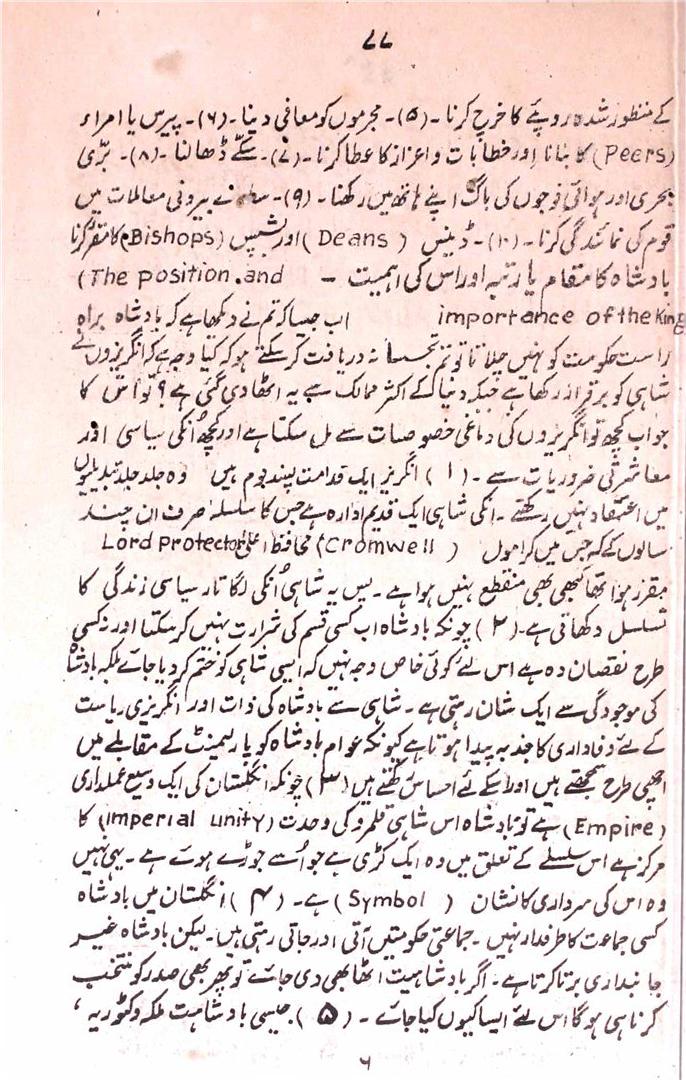 ۷۷
کے منظور شدہ روپئے کا خرچ کرنا ۔ (۵)۔ مجرموں کو معافی دینا ۔ (۶)۔ پیرس یا امراء
(Peers) کا بنانا اور خطابات و اعزاز کا عطا کرنا ۔ (۷)۔ سکّے ڈھالنا ۔ (۸)۔ برّی
بحری اور ہوائی فوجوں کی باگ اپنے ہاتھ میں رکھنا ۔ (۹)۔ سارے بیرونی معاملات میں
قوم کی نمائندگی کرنا ۔ (۱۰)۔ ڈینس (Deans) اور بشپس (Bishops) کا مقرر کرنا
بادشاہ کا مقام یا رتبہ اور اس کی اہمیت ۔ (The position and
importance of the King اب جیسا کہ تم نے دیکھا ہے کہ بادشاہ براہ
راست حکومت کو نہیں چلاتا تو تم تجسسانہ دریافت کر سکتے ہو کہ کیا وجہ ہے کہ انگریزوں نے
شاہی کو برقرار رکھا ہے جبکہ دنیا کے اکثر ممالک سے یہ اٹھا دی گئی ہے ؟ تو اس کا
جواب کچھ تو انگریزوں کی دماغی خصوصیات سے مل سکتا ہے اور کچھ اُنکی سیاسی اور
معاشرتی ضروریات سے ۔ (۱) انگریز ایک قدامت پسند قوم ہیں وہ جلد جلد تبدیلیوں
میں اعتقاد نہیں رکھتے ۔ انکی شاہی ایک قدیم ادارہ ہے جس کا سلسلہ صرف ان چند
سالوں کے کہ جس میں کرامول (Cromwell) محافظ اعلیٰ Lord Protector
مقرر ہوا تھا کبھی بھی منقطع نہیں ہوا ہے ۔ پس یہ شاہی اُنکی لگاتار سیاسی زندگی کا
تسلسل دکھاتی ہے ۔ (۲) چونکہ بادشاہ اب کسی قسم کی شرارت نہیں کر سکتا اور نہ کسی
طرح نقصان دہ ہے اس لئے کوئی خاص وجہ نہیں کہ ایسی شاہی کو ختم کر دیا جائے بلکہ بادشاہ
کی موجودگی سے ایک شان رہتی ہے ۔ شاہی سے بادشاہ کی ذات اور انگریزی ریاست
کے لئے وفاداری کا جذبہ پیدا ہوتا ہے کیونکہ عوام بادشاہ کو پارلیمنٹ کے مقابلے میں
اچھی طرح سمجھتے ہیں اور اسکے لئے احساس رکھتے ہیں (۳) چونکہ انگلستان کی ایک وسیع عملداری
(Empire) ہے تو بادشاہ اس شاہی قلمرو کی وحدت (Imperial unity) کا
مرکز ہے اس سلسلے کے تعلق میں وہ ایک کڑی ہے جو اُسے جوڑے ہوئے ہے ۔ یہی نہیں
وہ اس کی سرداری کا نشان (Symbol) ہے ۔ (۴) انگلستان میں بادشاہ
کسی جماعت کا طرفدار نہیں ۔ جماعتی حکومتیں آتی اور جاتی رہتی ہیں ۔ لیکن بادشاہ غیر
جانبداری برتا کرتا ہے ۔ اگر بادشاہیت اٹھا بھی دی جائے تو پھر بھی صدر کو منتخب
کرنا ہی ہوگا اس لئے ایسا کیوں کیا جائے ۔ (۵) جیسی بادشاہت ملکہ وکٹوریہ ،
۶